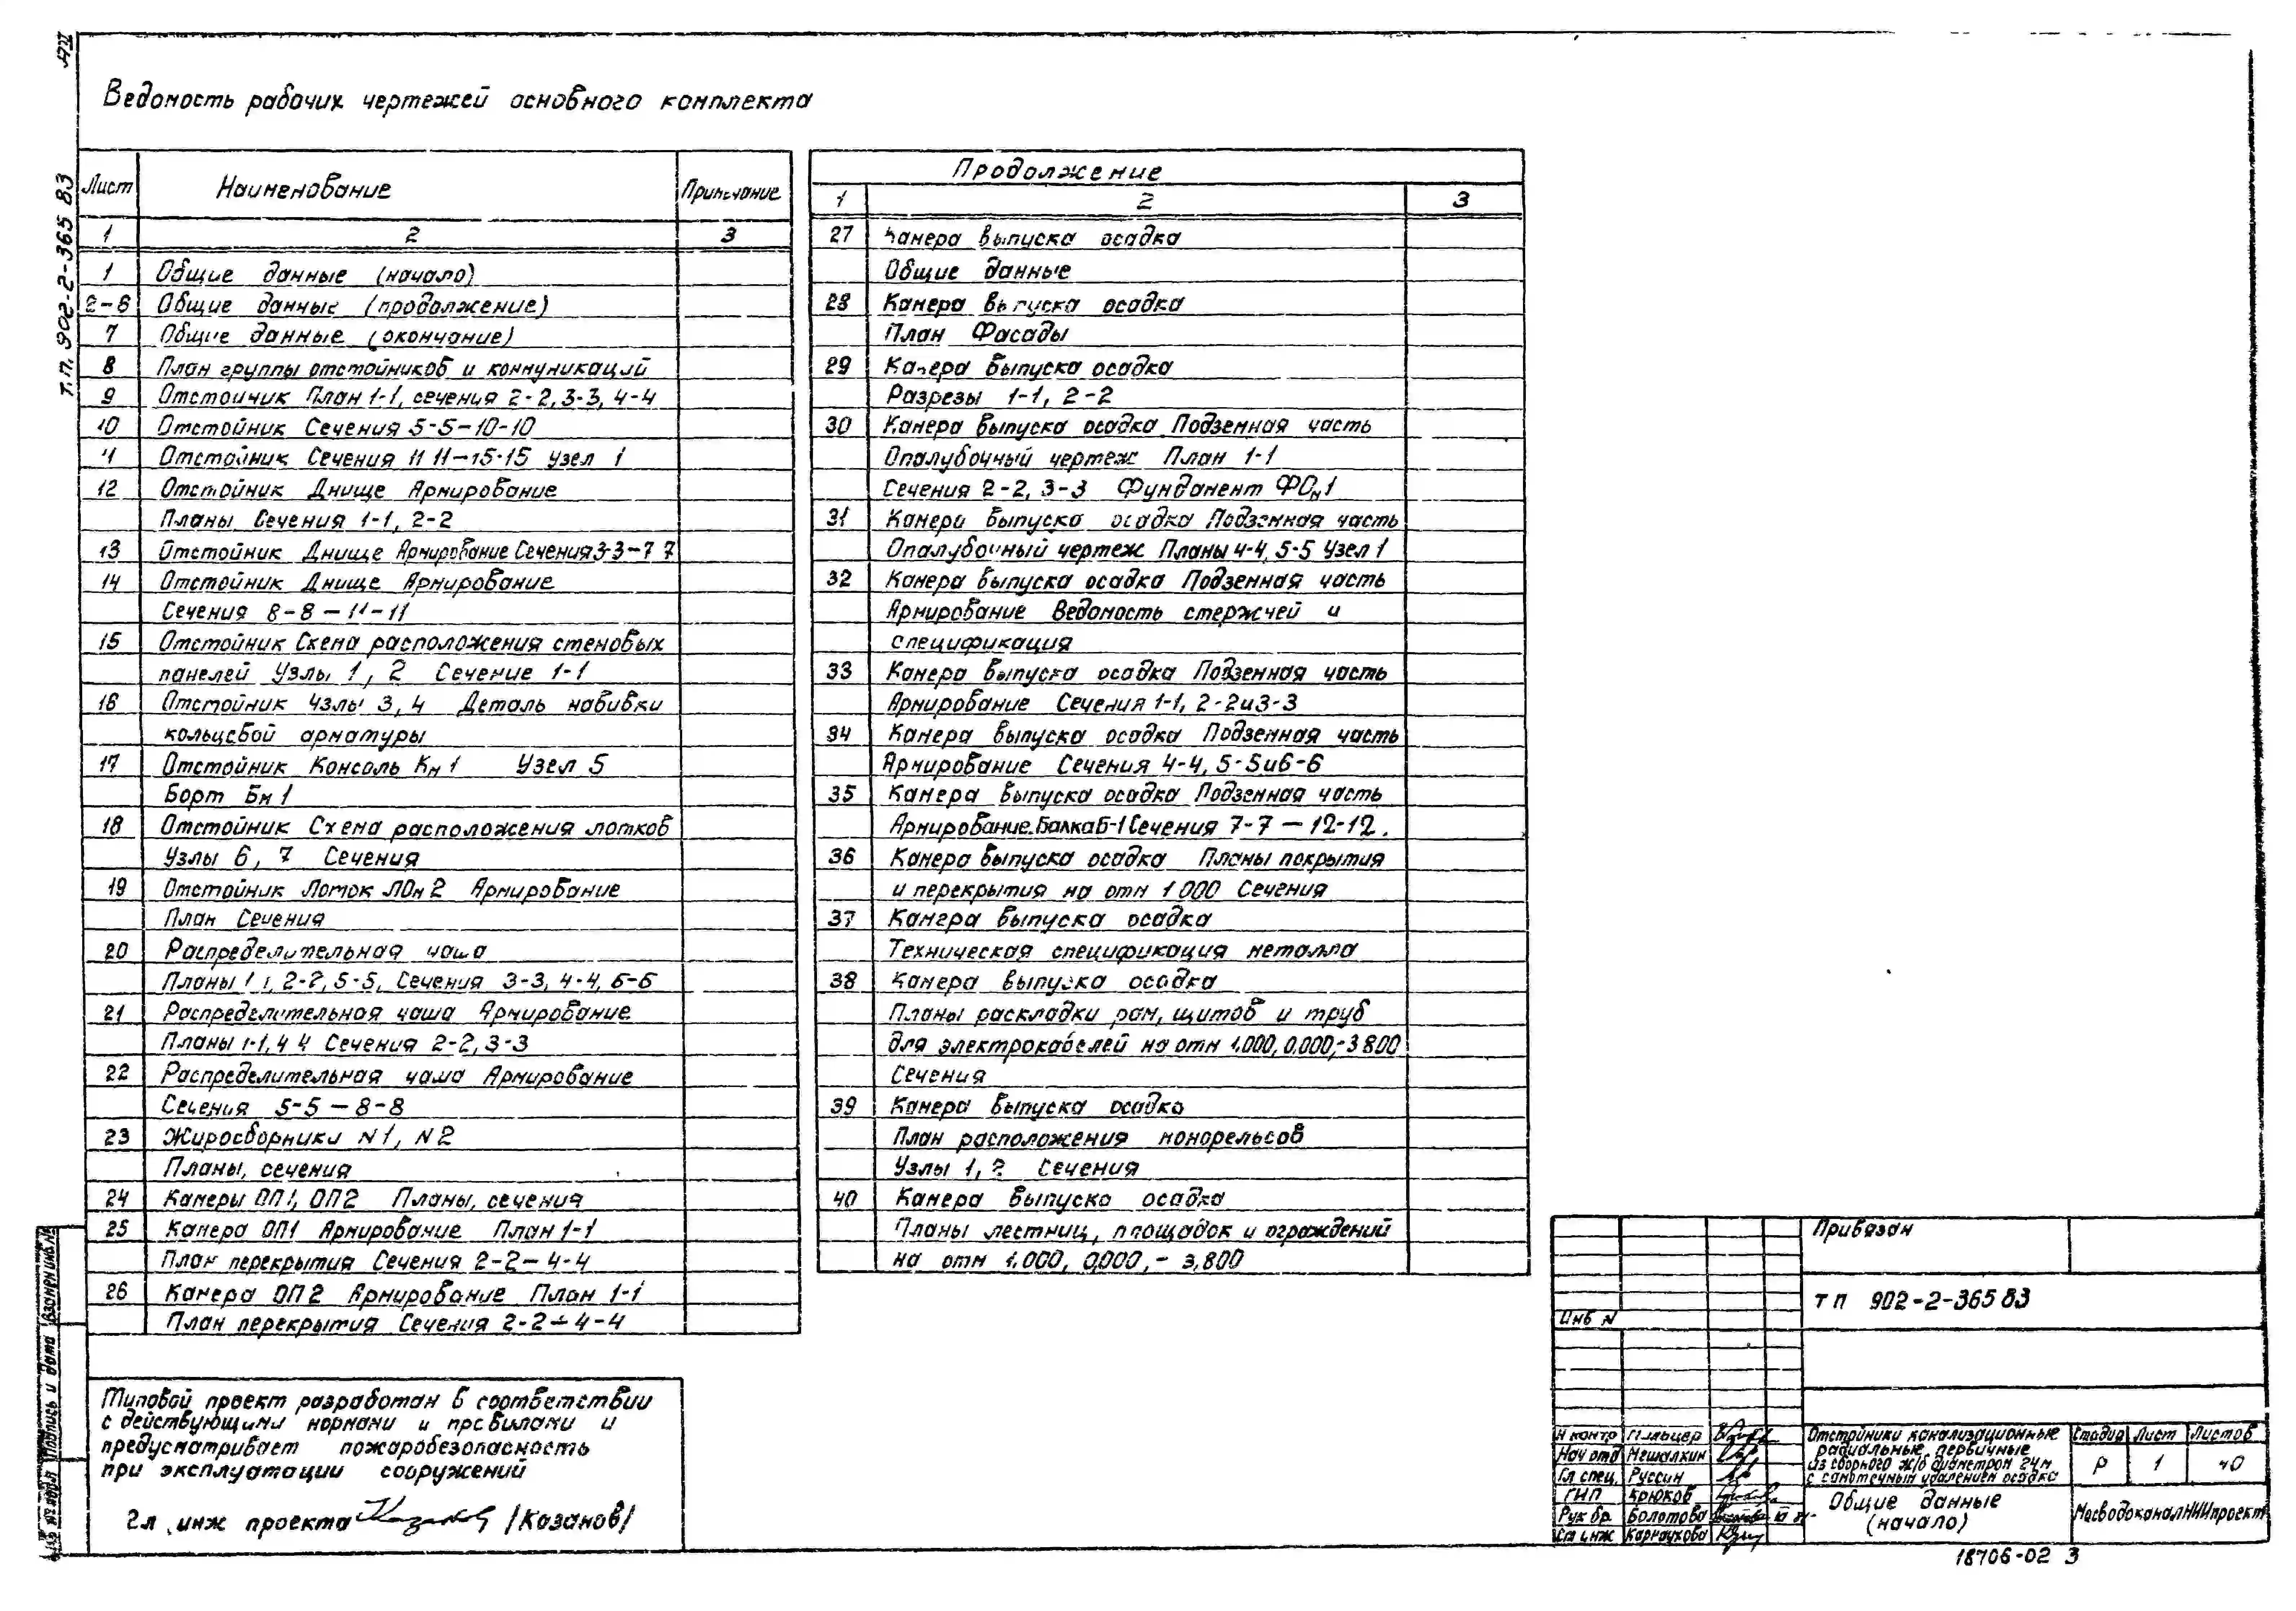 АЛ
Т.П. 902-2-365 83
Ведомость рабочих чертежей основного комплекта
Лист Наименование Примечание
1 2 3
1 Общие данные (начало)
2-6 Общие данные (продолжение)
7 Общие данные (окончание)
8 План группы отстойников и коммуникаций
9 Отстойник План 1-1, сечения 2-2, 3-3, 4-4
10 Отстойник Сечения 5-5-10-10
11 Отстойник Сечения 11 11-15-15 Узел 1
12 Отстойник Днище Армирование
Планы Сечения 1-1, 2-2
13 Отстойник Днище Армирование Сечения 3-3-7 7
14 Отстойник Днище Армирование
Сечения 8-8-11-11
15 Отстойник Схема расположения стеновых
панелей Узлы 1, 2 Сечение 1-1
16 Отстойник Узлы 3, 4 Деталь навивки
кольцевой арматуры
17 Отстойник Консоль Км 1 Узел 5
Борт Бм 1
18 Отстойник Схема расположения лотков
Узлы 6, 7 Сечения
19 Отстойник Лоток ЛОм 2 Армирование
План Сечения
20 Распределительная чаша
Планы 1 1, 2-2, 5-5, Сечения 3-3, 4-4, 6-6
21 Распределительная чаша Армирование
Планы 1-1, 4 4 Сечения 2-2, 3-3
22 Распределительная чаша Армирование
Сечения 5-5-8-8
23 Жиросборники N1, N2
Планы, сечения
24 Камеры ОП1, ОП2 Планы, сечения
25 Камера ОП1 Армирование План 1-1
План перекрытия Сечения 2-2-4-4
26 Камера ОП2 Армирование План 1-1
План перекрытия Сечения 2-2-4-4
Продолжение
1 2 3
27 Камера выпуска осадка
Общие данные
28 Камера выпуска осадка
План Фасады
29 Камера выпуска осадка
Разрезы 1-1, 2-2
30 Камера выпуска осадка. Подземная часть
Опалубочный чертеж План 1-1
Сечения 2-2, 3-3 Фундамент ФОм1
31 Камера выпуска осадка Подземная часть
Опалубочный чертеж Планы 4-4, 5-5 Узел 1
32 Камера выпуска осадка Подземная часть
Армирование Ведомость стержней и
спецификация
33 Камера выпуска осадка Подземная часть
Армирование Сечения 1-1, 2-2 и 3-3
34 Камера выпуска осадка Подземная часть
Армирование Сечения 4-4, 5-5 и 6-6
35 Камера выпуска осадка Подземная часть
Армирование. Балка Б-1 Сечения 7-7 - 12-12.
36 Камера выпуска осадка Планы покрытия
и перекрытия на отм 1 000 Сечения
37 Камера выпуска осадка
Техническая спецификация металла
38 Камера выпуска осадка
Планы раскладки рам, щитов и труб
для электрокабелей на отм 1.000, 0.000, -3 800
Сечения
39 Камера выпуска осадка
План расположения монорельсов
Узлы 1, 2 Сечения
40 Камера выпуска осадка
Планы лестниц, площадок и ограждений
на отм 1.000, 0,000, - 3,800
Типовой проект разработан в соответствии
с действующими нормами и правилами и
предусматривает пожаробезопасность
при эксплуатации сооружений
Гл. инж проекта /Казанов/
Взамен инв.№
Подпись и дата
Привязан
Инв N
ТП 902-2-365 83
Н контр Гильцер
Нач отд Мешалкин
Гл спец. Руссин
ГИП Крюков
Рук бр. Болотова
Ст инж Карнаухова
Отстойники канализационные
радиальные, первичные
из сборного ж/б диаметром 24м
с самотечным удалением осадка
Стадия Лист Листов
Р 1 40
Общие данные
(начало)
МосводоканалНИИпроект
18706-02 3